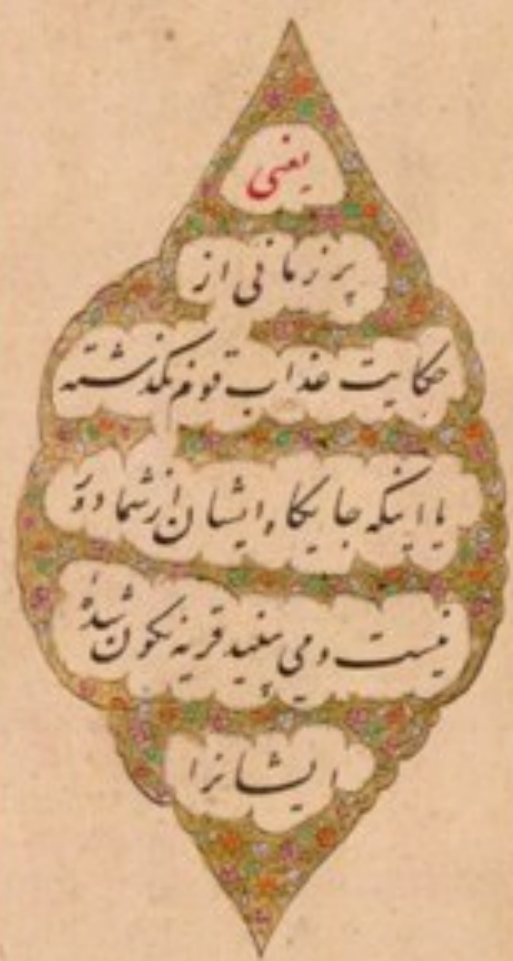 یعنی
پر زمانی از
حکایت عذاب قوم نگذشته
یا اینکه جایگاه ایشان از شما دور
نیست و می بینید قریه نگون شدهٔ
ایشانرا